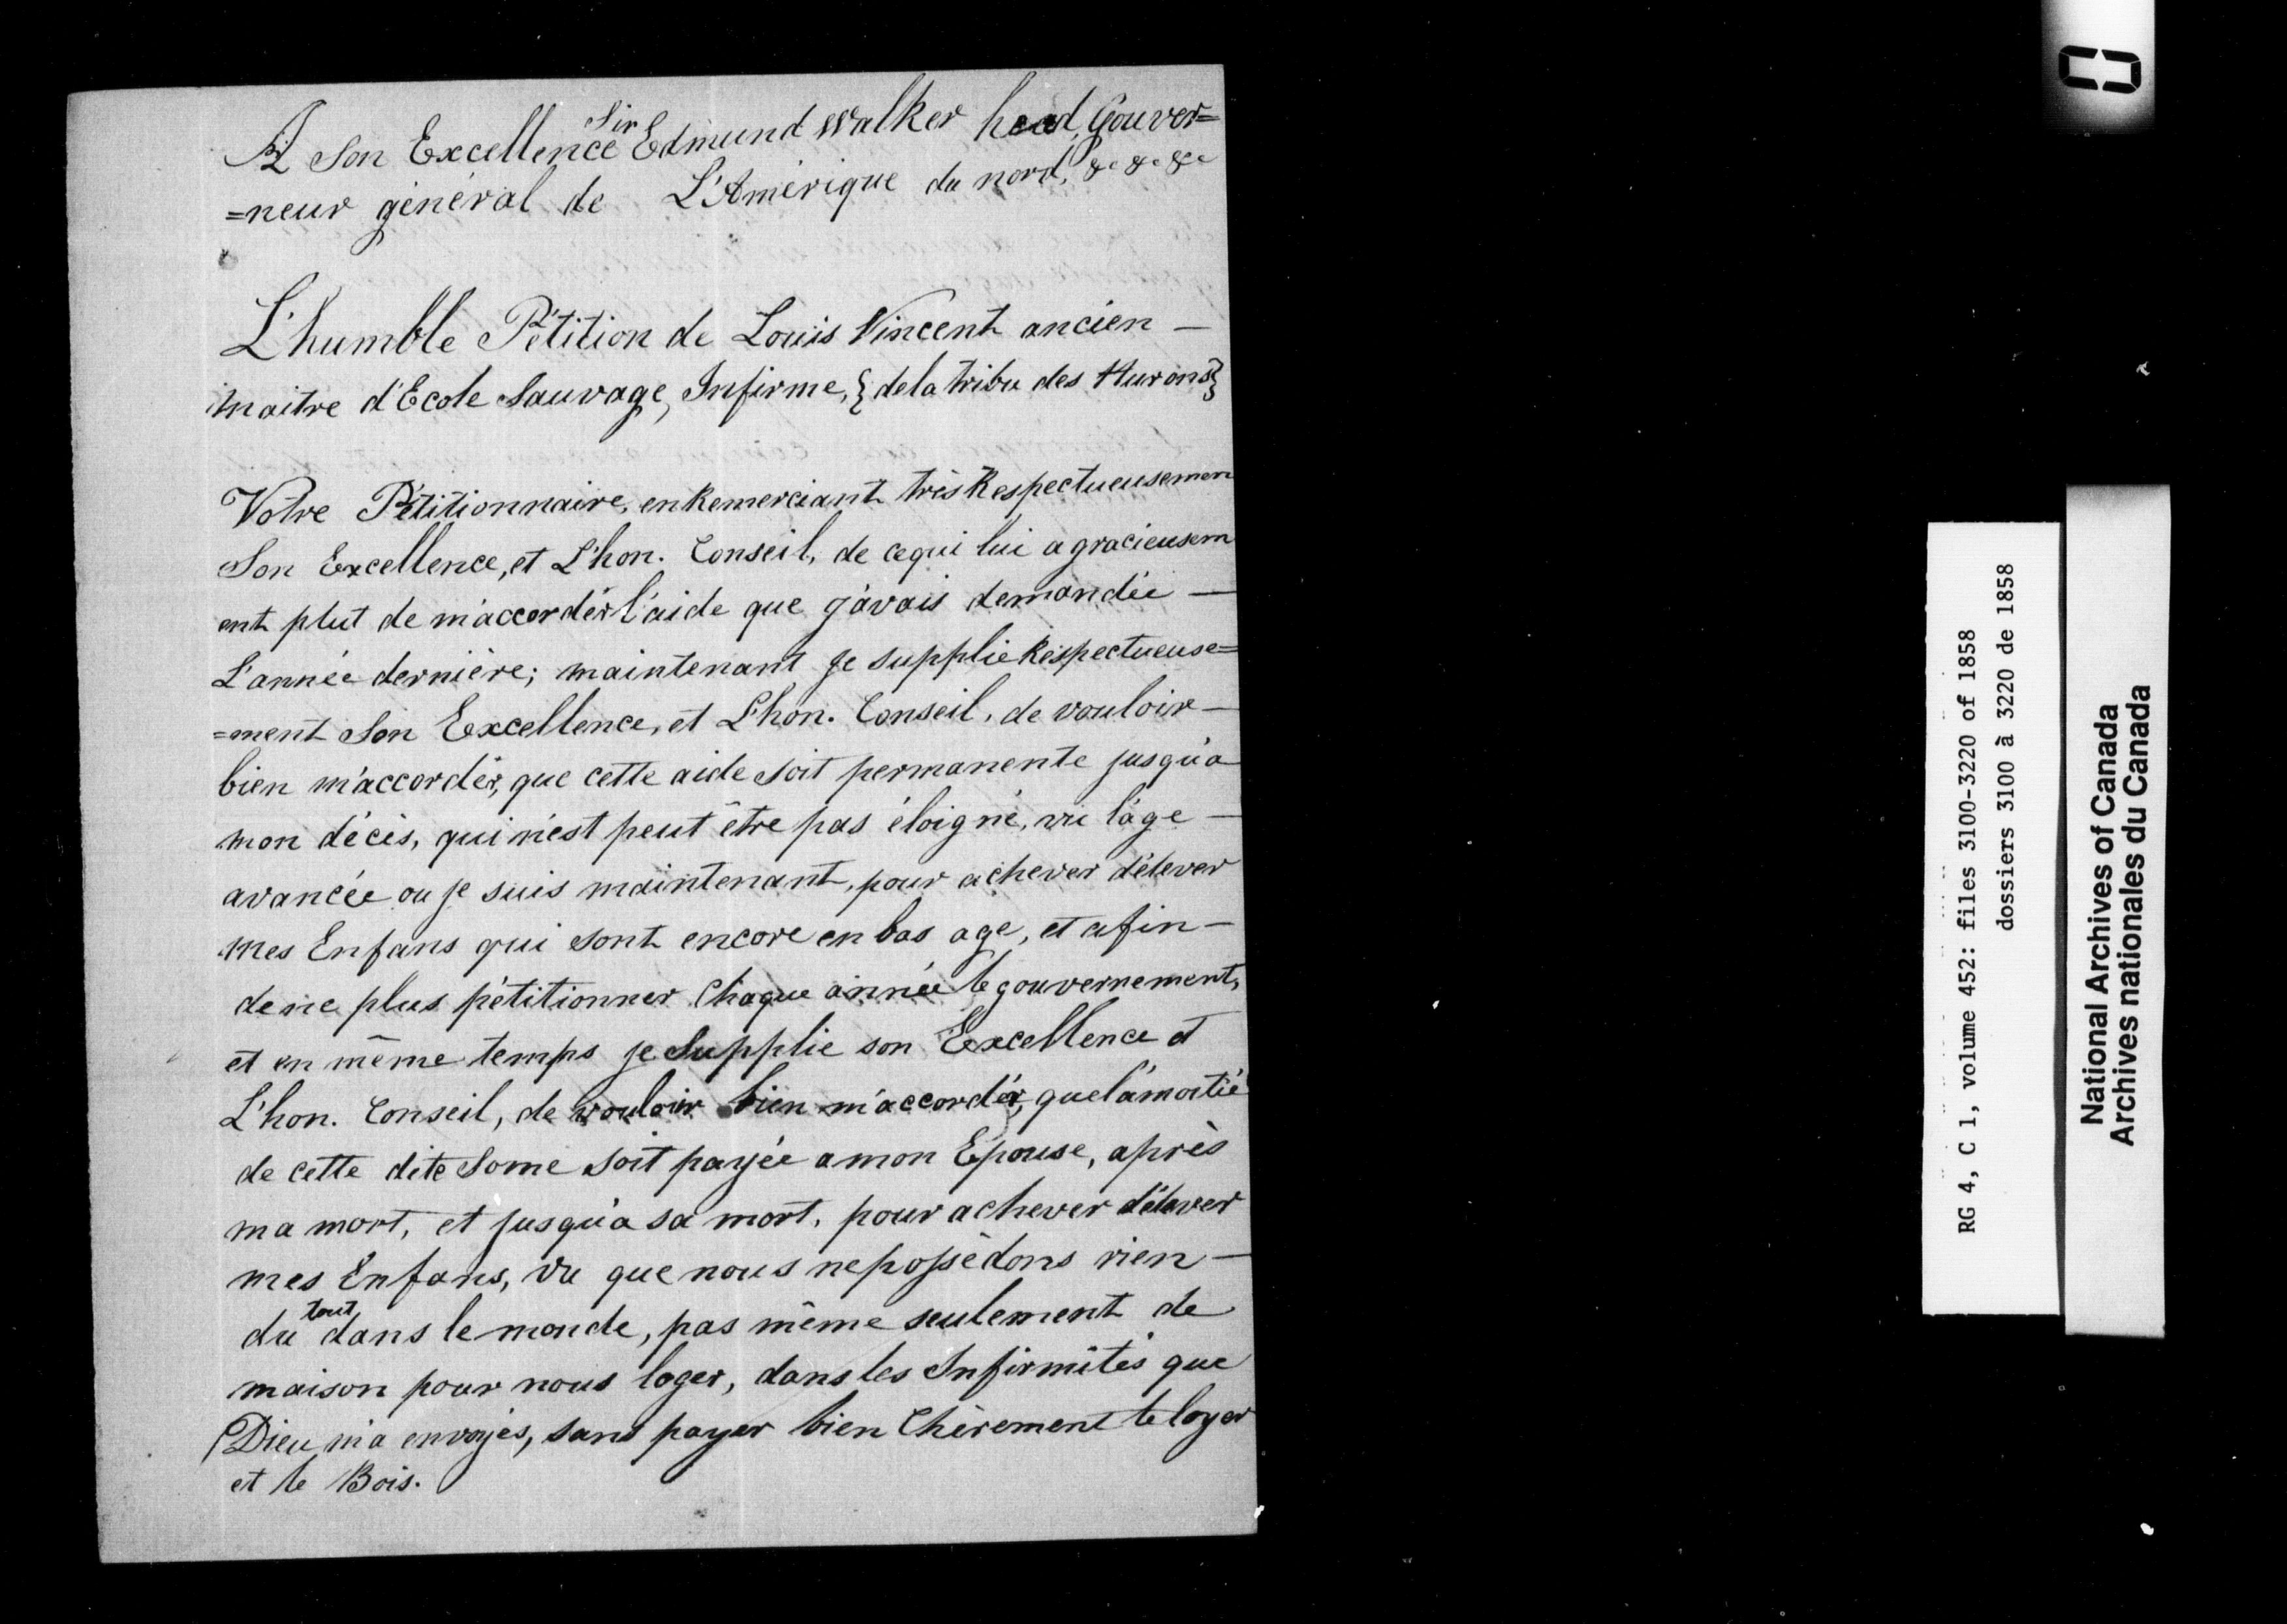 A Son Excellence Sir Edmund Walker head, Gouver=
=neur général de L'Amérique du nord, &c &c &c
L'humble Pétition de Louis Vincent ancien —
maitre d'Ecole Sauvage, Infirme, {de la tribu des Hurons}
Votre Pétitionnaire, en Remerciant très Respectueusemen
Son Excellence, et L'hon. Conseil, de ce qui lui a gracieusem
ent plut de m'accordér l'aide que j'avais demandée —
L'année dernière; maintenant je supplie Respectueuse=
=ment Son Excellence, et L'hon. Conseil, de vouloir —
bien m'accordér, que cette aide soit permanente jusqu'a
mon décès, qui n'est peut être pas éloigné, vu l'age —
avancée ou je suis maintenant, pour achever d'élever
mes Enfans qui sont encore en bas age, et afin —
de ne plus pétitionner Chaque année le gouvernement,
et en même temps je Supplie son Excellence et
L'hon. Conseil, de vouloir bien m'accordér, que la moitié
de cette dite Some soit payée a mon Epouse, après
ma mort, et jusqu'a sa mort, pour achever d'élever
mes Enfans, vu que nous ne possèdons rien —
du tout dans le monde, pas même seulement de
maison pour nous loger, dans les Infirmités que
Dieu m'a envoyés, sans payer bien Chèrement le loyer
et le Bois.
RG 4, C 1, volume 452: files 3100-3220 of 1858
dossiers 3100 à 3220 de 1858
National Archives of Canada
Archives nationales du Canada